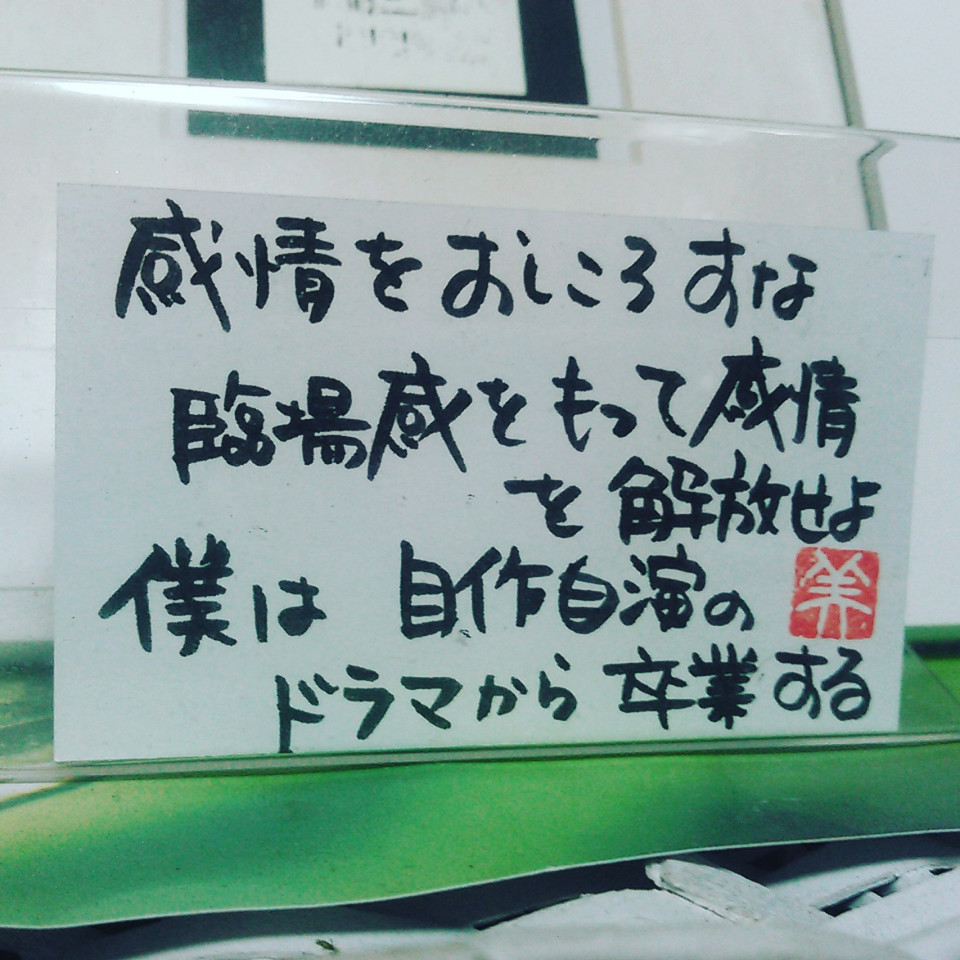 感情をおしころすな
臨場感をもって感情
を解放せよ
僕は自作自演の
ドラマから卒業する